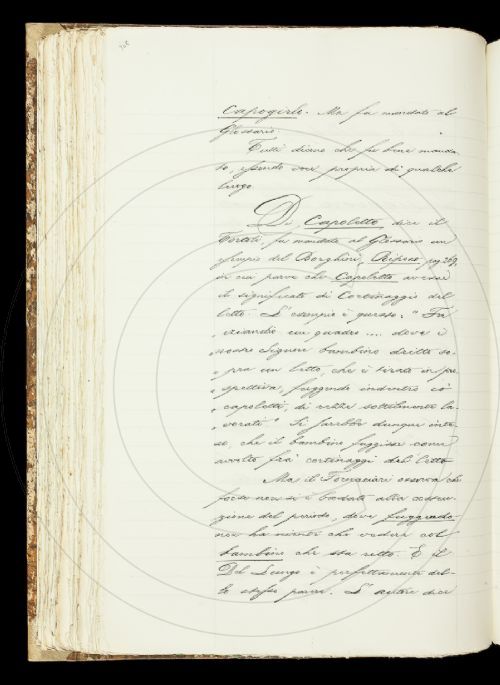 Capogirlo. Ma fu mandato al
Glossario.
Tutti dicono che fu bene manda-
to, essendo voce propria di qualche
luogo.
Di Capoletto, dice il
Tortoli, fu mandato al Glossario un
esempio del Borghini, Riposo pag. 269,
in cui parve che Capoletto avesse
il significato di Cortinaggio del
letto. L'esempio è questo: " In
" un quadro .... dove i
" nostri Signori bambino diritto so-
" pra un letto, che è tirato in pro-
" spettiva, fuggendo indentro co'
" capoletti, di sottilmente la-
" vorati." Si sarebbe dunque inte-
so, che il bambino fuggisse come
avvolto fra' cortinaggi del letto
Ma il Fornaciari osserva che
forse non si è badato alla costru-
zione del periodo, dove fuggendo
non ha niente che vedere col
bambino che sta ritto. E il
Del Lungo è perfettamente del-
lo stesso parere. L' autore dice